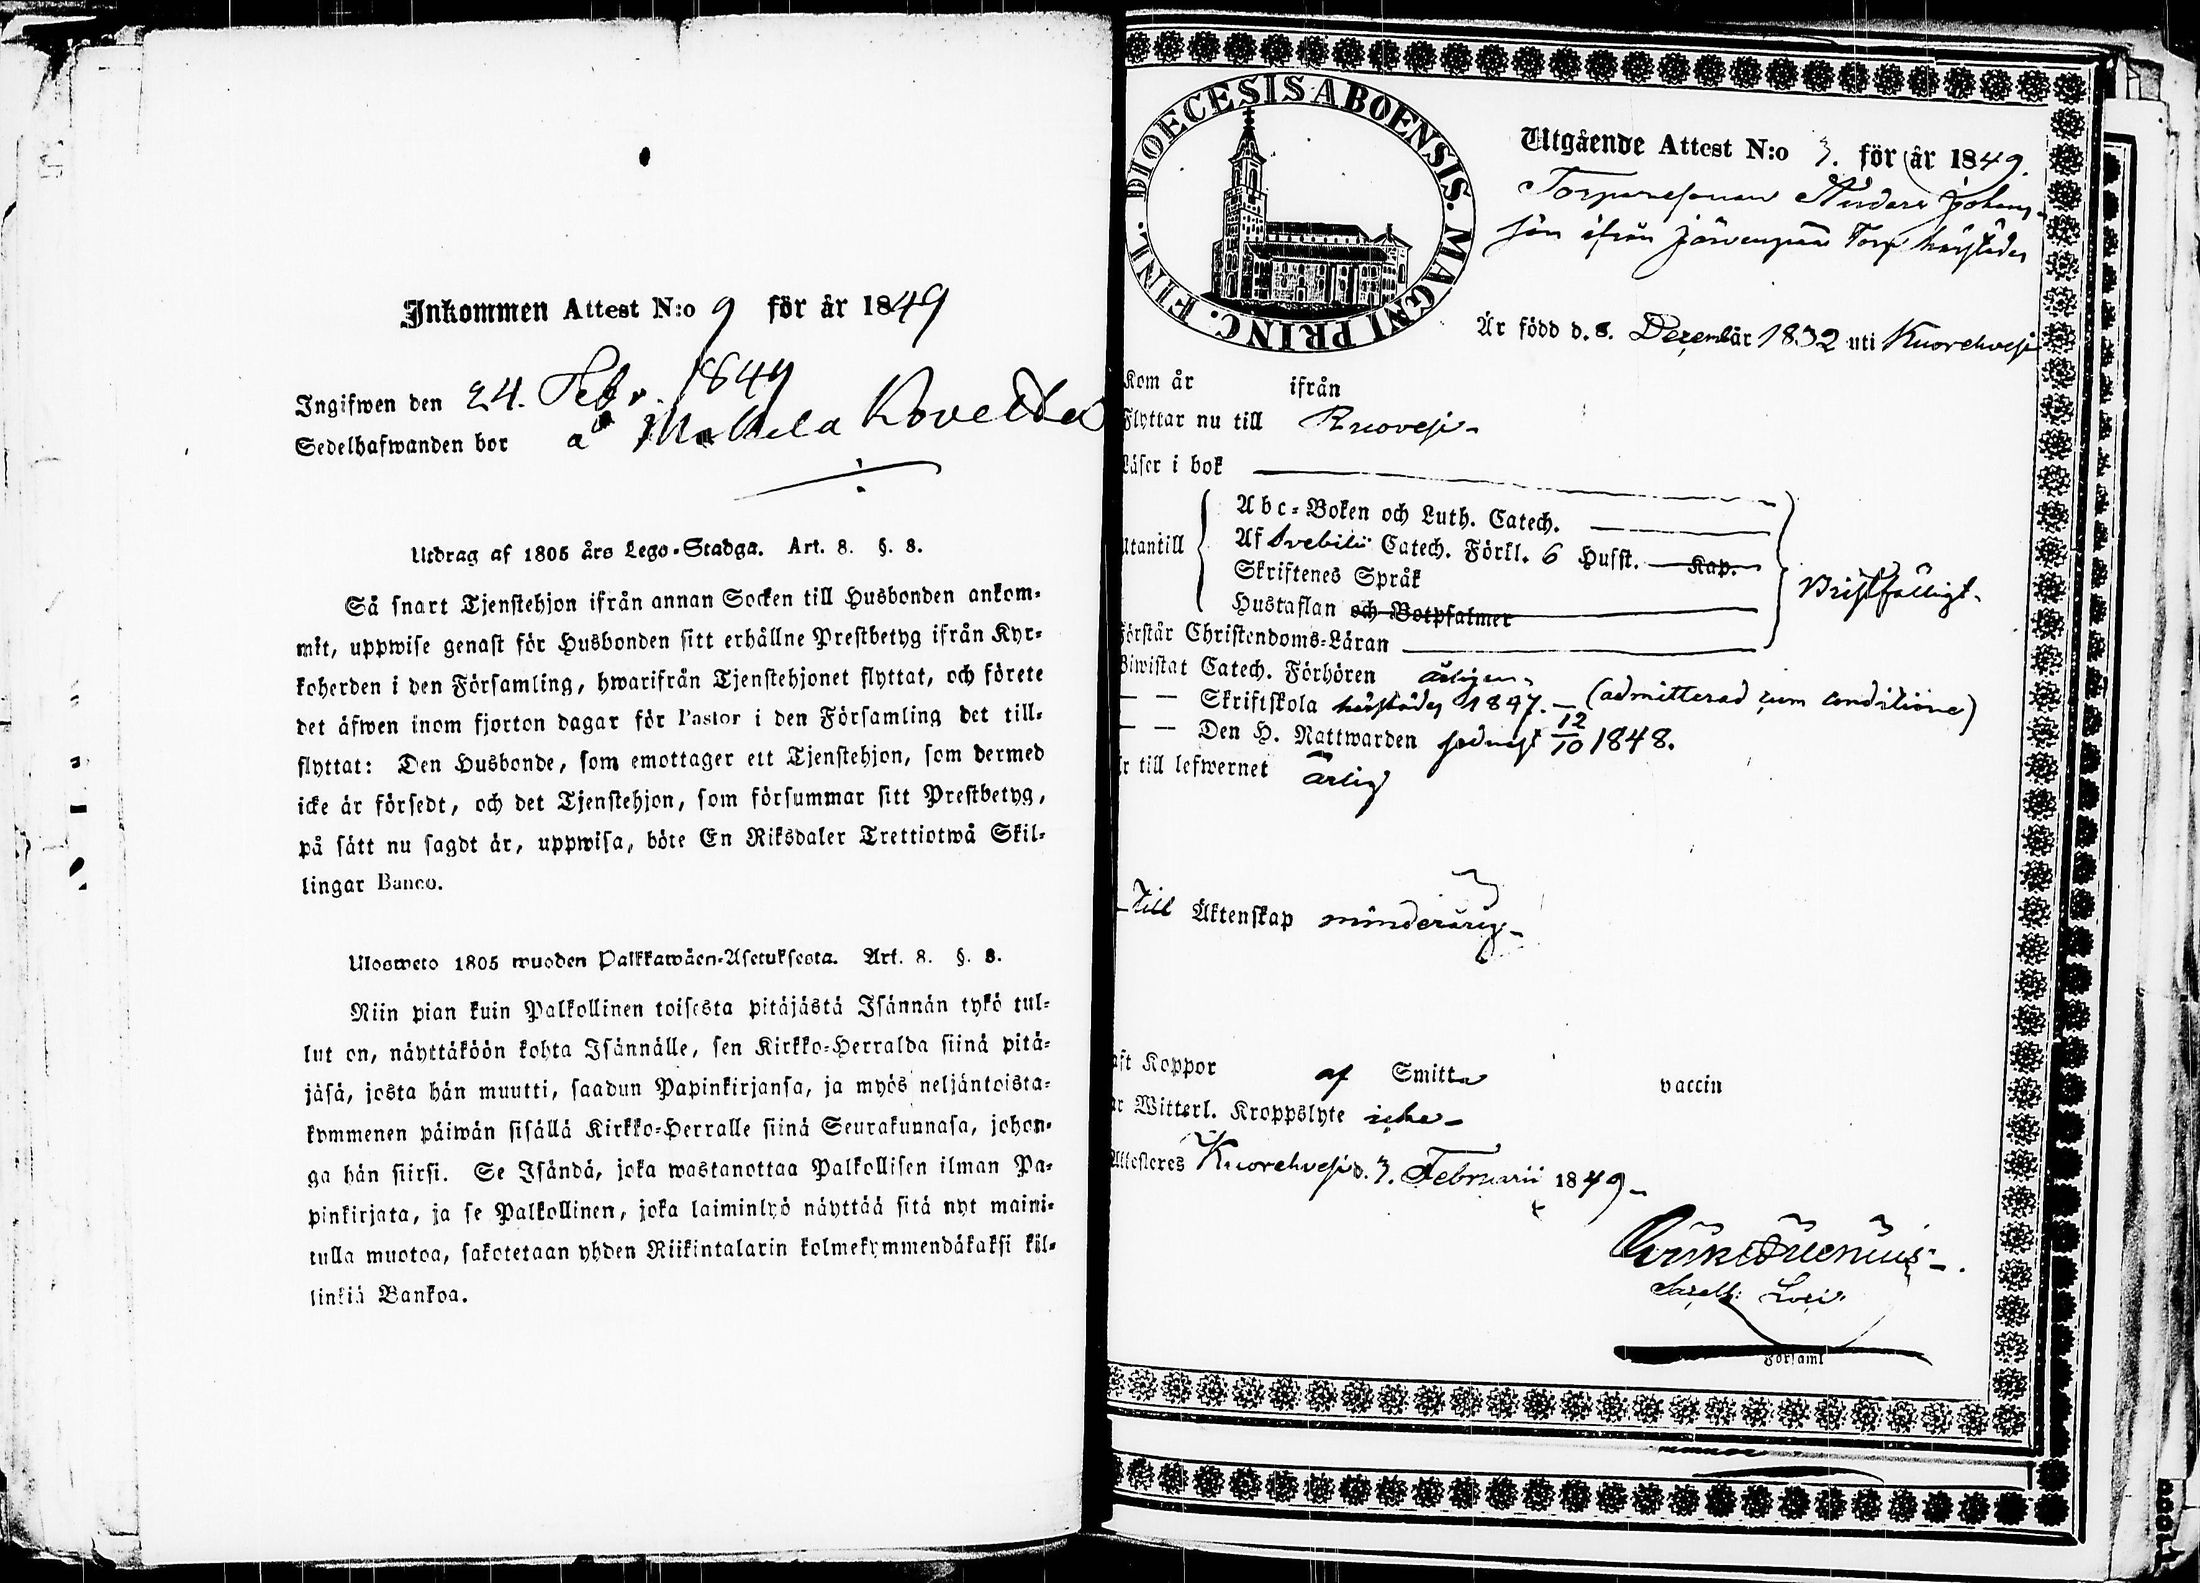 Inkommen Attest N:o 9 för år 1849
Ingifwen den 24. Febr. 1849
Sedelhafwanden bor å
Utdrag af 1805 års Lego-Stadga. Art. 8. §. 8.
Så snart Tjenstehjon ifrån annan Socken till Husbonden ankom-
mit, uppwise genast för Husbonden sitt erhållne Prestbetyg ifrån Kyr-
koherden i den Församling, hwarifrån Tjenstehjonet flyttat, och förete
det äfwen inom fjorton dagar för Pastor i den Församling det till-
flyttat: Den Husbonde, som emottager ett Tjenstehjon, som dermed
icke är försedt, och det Tjenstehjon, som försummar sitt Prestbetyg,
på sätt nu sagdt är, uppwisa, böte En Riksdaler Trettiotwå Skil-
lingar Banco.
Ulosweto 1805 wuoden Palkkawäen-Asetuksesta. Art. 8. §. 8.
Niin pian kuin Palkollinen toisesta pitäjästä Isännän tykö tul-
lut on, näyttäköön kohta Isännälle, sen Kirkko-Herralda siinä pitä-
jäsä, josta hän muutti, saadun Papinkirjansa, ja myös neljäntoista-
kymmenen päiwän sisällä Kirkko-Herralle siinä Seurakunnasa, johon-
ga hän siirsi. Se Isändä, joka wastanottaa Palkollisen ilman Pa-
pinkirjata, ja se Palkollinen, joka laiminlyö näyttää sitä nyt maini-
tulla muotoa, sakotetaan yhden Riikintalarin kolmekymmendäkaksi kil-
linkiä Bankoa.
DIOECESIS ABOENSIS. MAGNI PRINC. FINL.
Utgående Attest N:o 3. för år 1849.
Torparesonen Anders Johans-
son ifrån Järvenpää Torp härstädes
Är född d. 8. Dezembär 1832 uti Kuorehvesi
Kom år ifrån
Flyttar nu till Ruovesi-
Läser i bok
Abc-Boken och Luth. Catech.
Utantill Af Svebilii Catech. Förkl. 6 Hufst. Kap.
Skriftenes Språk
Hustaflan och Botpsalmer Bristfälligt.
Förstår Christendoms-Läran
Biwistat Catech. Förhören årligen.
— — Skriftskola härstädes 1847. — (admitterad cum conditione)
— — Den H. Nattwarden sednast 12/10 1848.
Är till lefwernet ärlig
Till Äktenskap minderårig-
aft Koppor af Smitta vaccin
ar Witterl. Kroppslyte icke-
Attesteres Kuorehvesi d. 3. Februarii 1849-
Församl